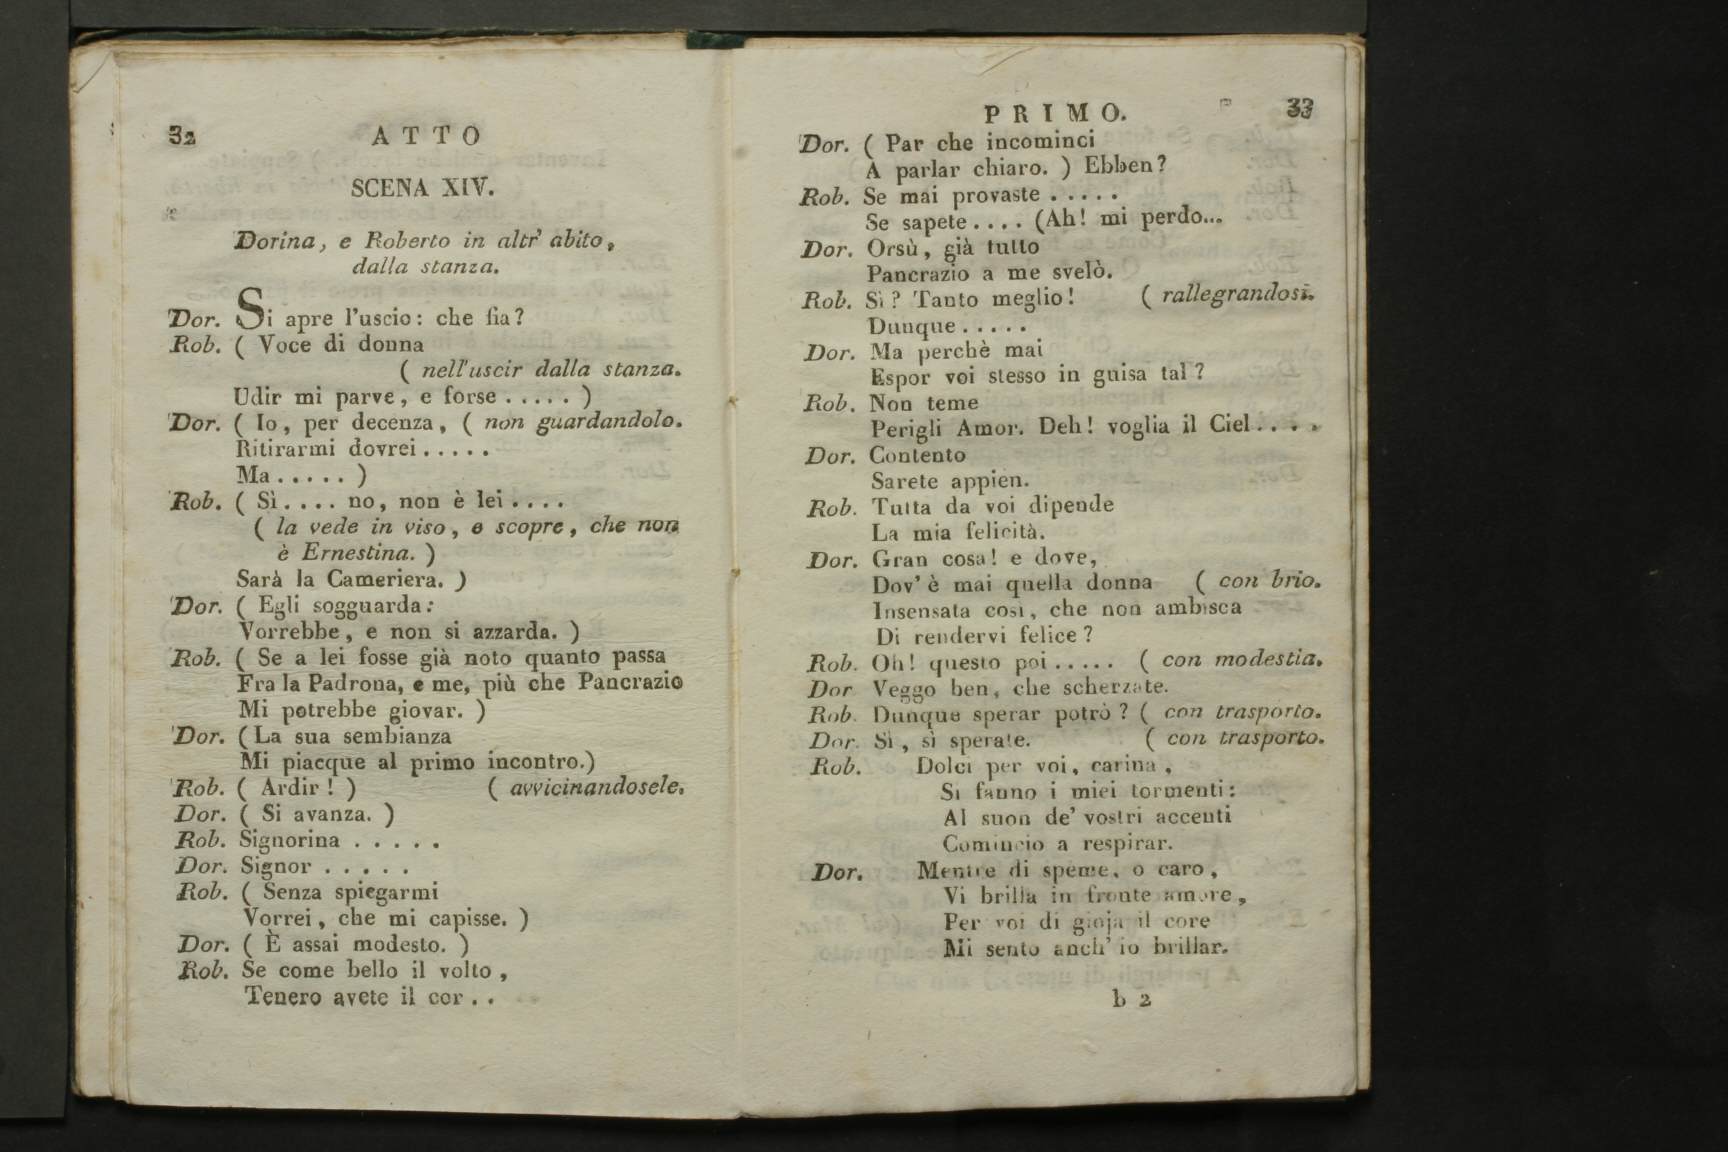 32 ATTO
SCENA XIV.
Dorina, e Roberto in altr' abito,
dalla stanza.
Dor. Si apre l'uscio: che fia?
Rob. ( Voce di donna
( nell'uscir dalla stanza.
Udir mi parve, e forse . . . . . )
Dor. ( Io, per decenza, ( non guardandolo.
Ritirarmi dovrei . . . . .
Ma . . . . . )
Rob. ( Sì . . . . no, non è lei . . . .
( la vede in viso, e scopre, che non
è Ernestina. )
Sarà la Cameriera. )
Dor. ( Egli sogguarda:
Vorrebbe, e non si azzarda. )
Rob. ( Se a lei fosse già noto quanto passa
Fra la Padrona, e me, più che Pancrazio
Mi potrebbe giovar. )
Dor. (La sua sembianza
Mi piacque al primo incontro.)
Rob. ( Ardir ! ) ( avvicinandosele.
Dor. ( Si avanza. )
Rob. Signorina . . . . .
Dor. Signor . . . . .
Rob. ( Senza spiegarmi
Vorrei, che mi capisse. )
Dor. ( È assai modesto. )
Rob. Se come bello il volto,
Tenero avete il cor . .
PRIMO. 33
Dor. ( Par che incominci
A parlar chiaro. ) Ebben?
Rob. Se mai provaste . . . . .
Se sapete . . . . (Ah! mi perdo...
Dor. Orsù, già tutto
Pancrazio a me svelò.
Rob. Sì? Tanto meglio! ( rallegrandosi.
Dunque . . . . .
Dor. Ma perchè mai
Espor voi stesso in guisa tal?
Rob. Non teme
Perigli Amor. Deh! voglia il Ciel . . . .
Dor. Contento
Sarete appien.
Rob. Tutta da voi dipende
La mia felicità.
Dor. Gran cosa! e dove,
Dov' è mai quella donna ( con brio.
Insensata così, che non ambisca
Di rendervi felice?
Rob. Oh! questo poi . . . . . ( con modestia.
Dor Veggo ben, che scherzate.
Rob. Dunque sperar potrò? ( con trasporto.
Dor. Sì, sì sperate. ( con trasporto.
Rob. Dolci per voi, carina,
Si fanno i miei tormenti:
Al suon de' vostri accenti
Comincio a respirar.
Dor. Mentre di speme, o caro,
Vi brilla in fronte amore,
Per voi di gioja il core
Mi sento anch' io brillar.
b 2